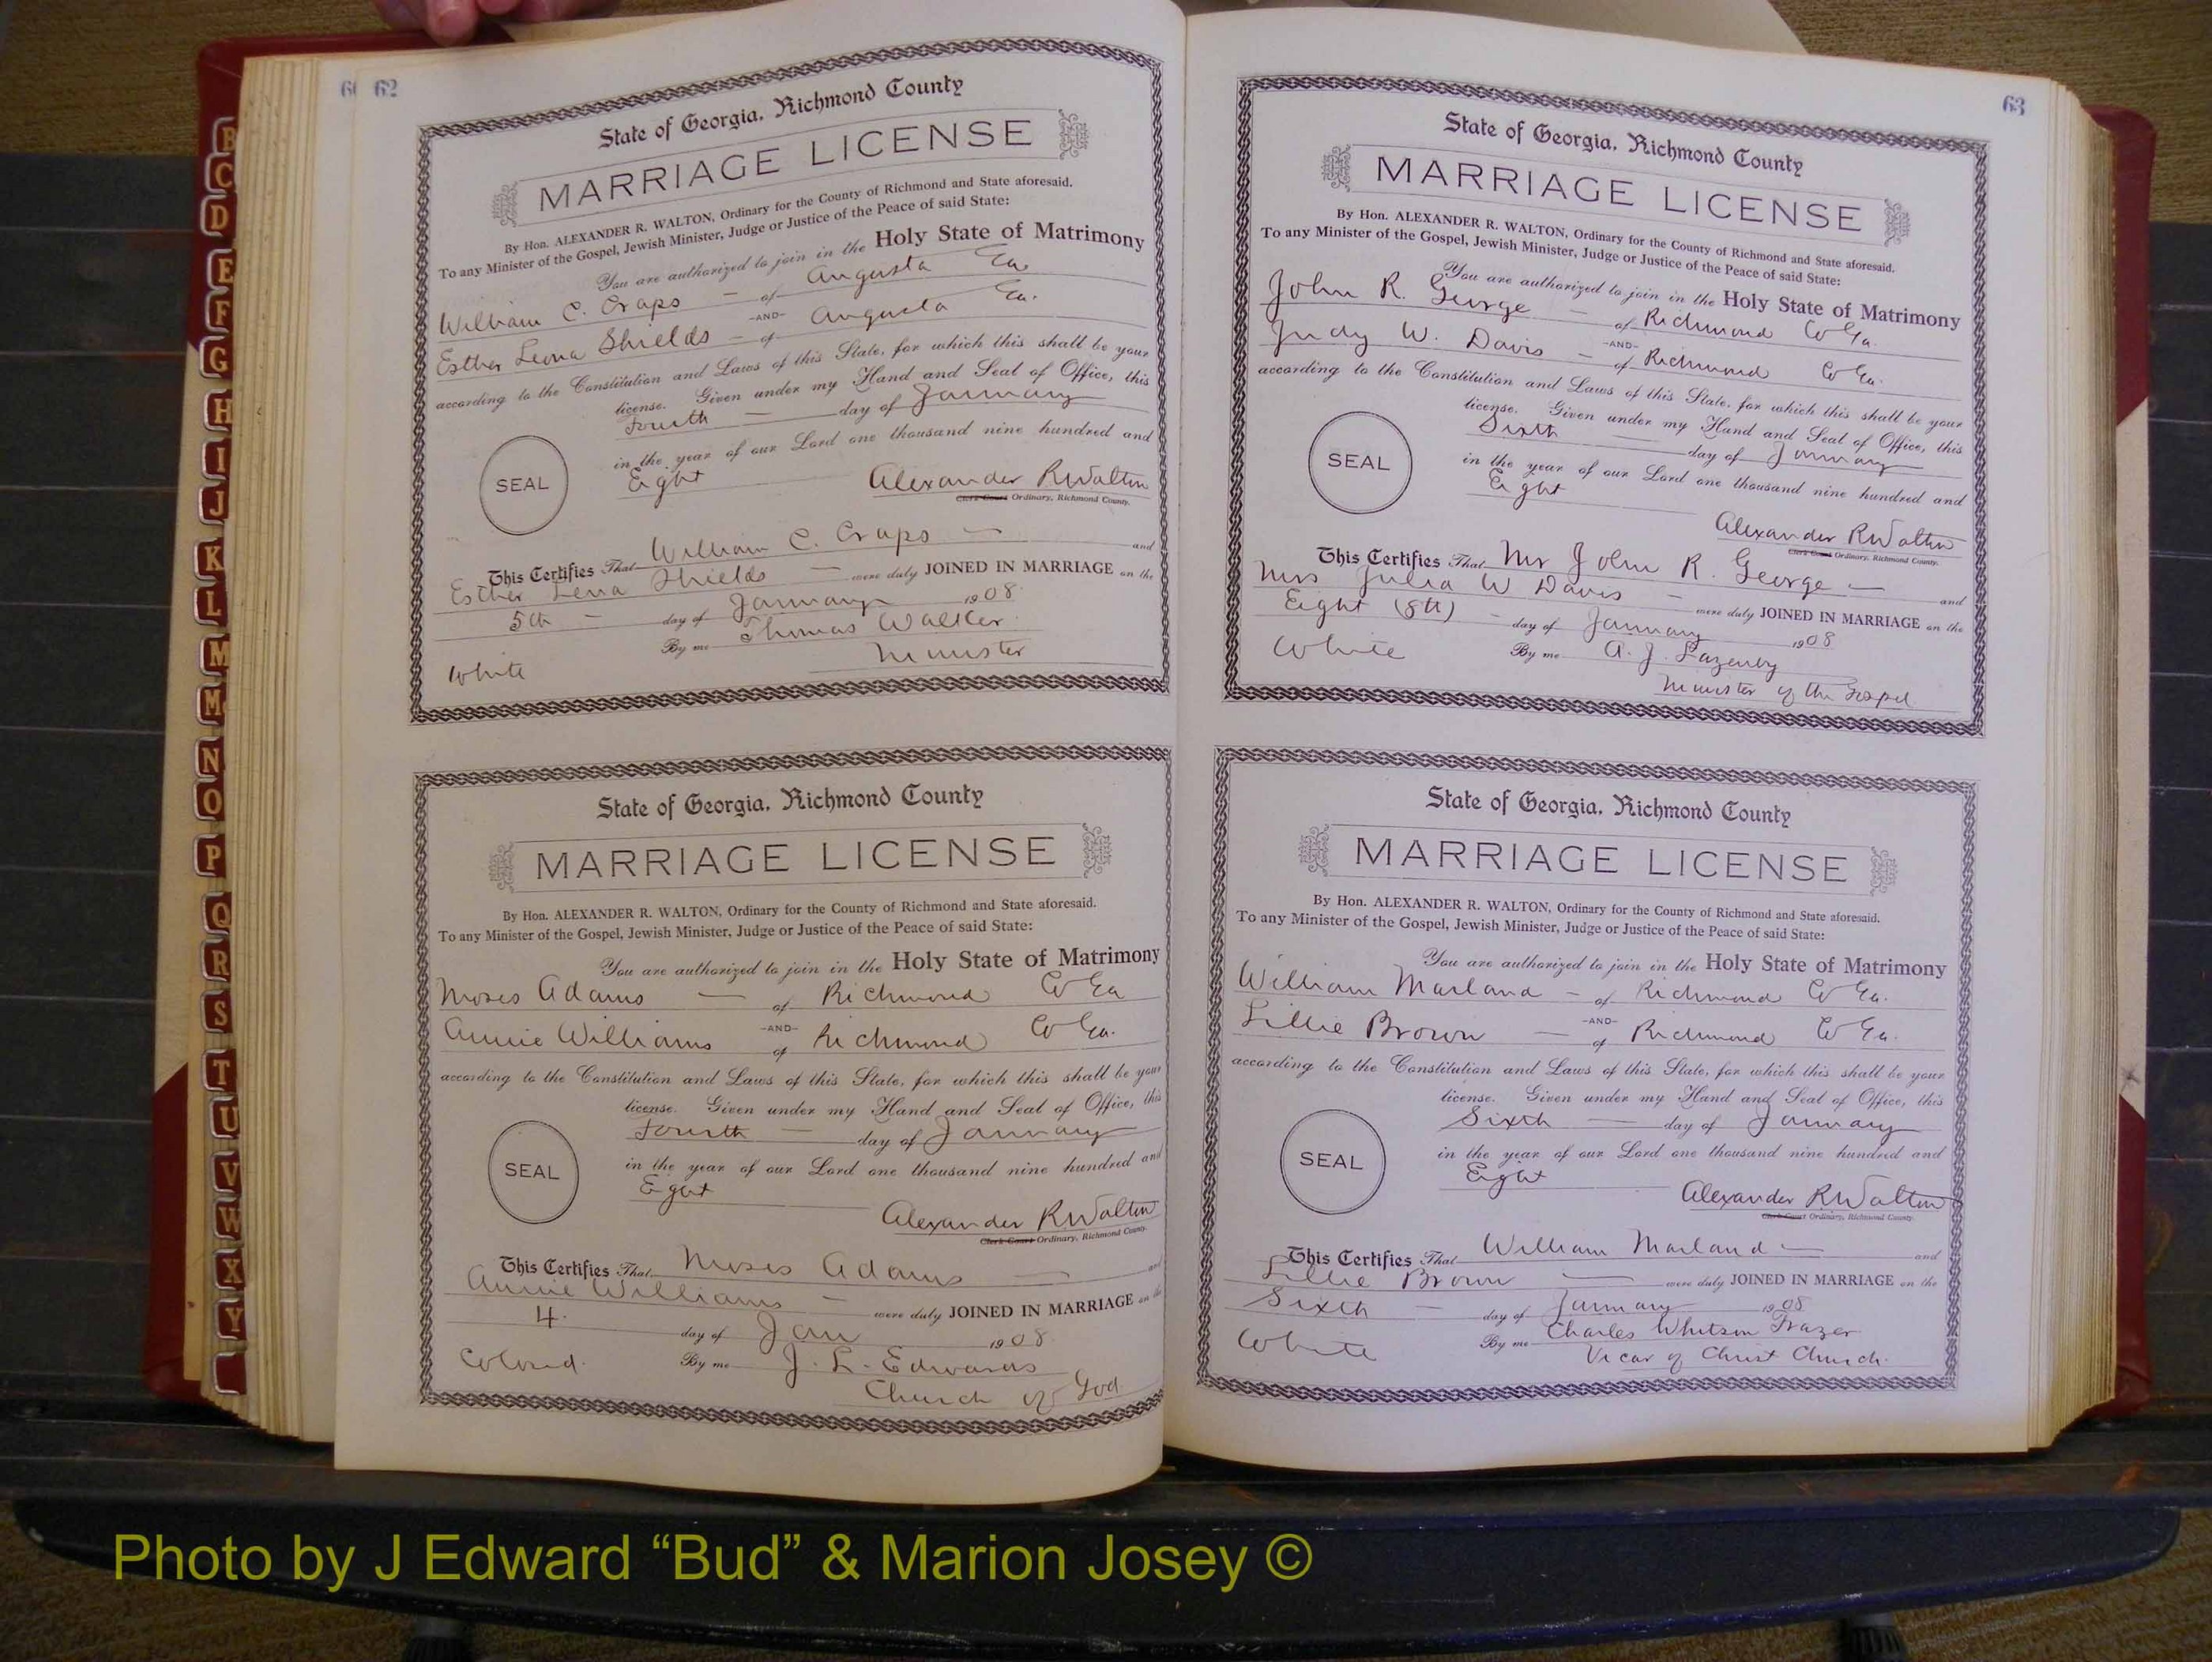 62
State of Georgia, Richmond County
MARRIAGE LICENSE
By Hon. ALEXANDER R. WALTON, Ordinary for the County of Richmond and State aforesaid.
To any Minister of the Gospel, Jewish Minister, Judge or Justice of the Peace of said State:
You are authorized to join in the Holy State of Matrimony
William C. Craps - of Augusta Ga.
-AND-
Esther Leona Shields - of Augusta Ga.
according to the Constitution and Laws of this State, for which this shall be your
license. Given under my Hand and Seal of Office, this
Fourth - day of January
in the year of our Lord one thousand nine hundred and
Eight
SEAL
Alexander R Walton
Clerk Court Ordinary, Richmond County.
This Certifies That William C. Craps - and
Esther Lena Shields - were duly JOINED IN MARRIAGE on the
5th - day of January 1908
By me Thomas Walker
White Minister
State of Georgia, Richmond County
MARRIAGE LICENSE
By Hon. ALEXANDER R. WALTON, Ordinary for the County of Richmond and State aforesaid.
To any Minister of the Gospel, Jewish Minister, Judge or Justice of the Peace of said State:
You are authorized to join in the Holy State of Matrimony
Moses Adams - of Richmond Co Ga
-AND-
Annie Williams of Richmond Co Ga.
according to the Constitution and Laws of this State, for which this shall be your
license. Given under my Hand and Seal of Office, this
Fourth - day of January
in the year of our Lord one thousand nine hundred and
Eight
SEAL
Alexander R Walton
Clerk Court Ordinary, Richmond County.
This Certifies That Moses Adams - and
Annie Williams - were duly JOINED IN MARRIAGE on the
4. day of Jan 1908.
Colored. By me J. L. Edwards
Church of God.
63
State of Georgia, Richmond County
MARRIAGE LICENSE
By Hon. ALEXANDER R. WALTON, Ordinary for the County of Richmond and State aforesaid.
To any Minister of the Gospel, Jewish Minister, Judge or Justice of the Peace of said State:
You are authorized to join in the Holy State of Matrimony
John R. George - of Richmond Co Ga.
-AND-
Judy W. Davis - of Richmond Co Ga.
according to the Constitution and Laws of this State, for which this shall be your
license. Given under my Hand and Seal of Office, this
Sixth day of January
in the year of our Lord one thousand nine hundred and
Eight
SEAL
Alexander R Walton
Clerk Court Ordinary, Richmond County.
This Certifies That Mr John R. George - and
Mrs Julia W Davis - were duly JOINED IN MARRIAGE on the
Eight (8th) - day of January 1908
White By me A. J. Lazenby
Minister of the Gospel
State of Georgia, Richmond County
MARRIAGE LICENSE
By Hon. ALEXANDER R. WALTON, Ordinary for the County of Richmond and State aforesaid.
To any Minister of the Gospel, Jewish Minister, Judge or Justice of the Peace of said State:
You are authorized to join in the Holy State of Matrimony
William Marland - of Richmond Co Ga.
-AND-
Lillie Brown - of Richmond Co Ga.
according to the Constitution and Laws of this State, for which this shall be your
license. Given under my Hand and Seal of Office, this
Sixth - day of January
in the year of our Lord one thousand nine hundred and
Eight
SEAL
Alexander R Walton
Clerk Court Ordinary, Richmond County.
This Certifies That William Marland - and
Lillie Brown - were duly JOINED IN MARRIAGE on the
Sixth - day of January 1908
White By me Charles Whitson Frazer
Vicar of Christ Church.
B
C
D
E
F
G
H
I
J
K
L
M
Mc
N
O
P
Q
R
S
T
U
V
W
X
Y
Photo by J Edward “Bud” & Marion Josey ©